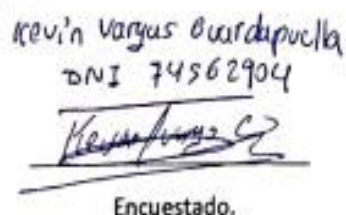 Kevin Vargas Guardapuclla
DNI 74562904
Kevin Vargas G
Encuestado.